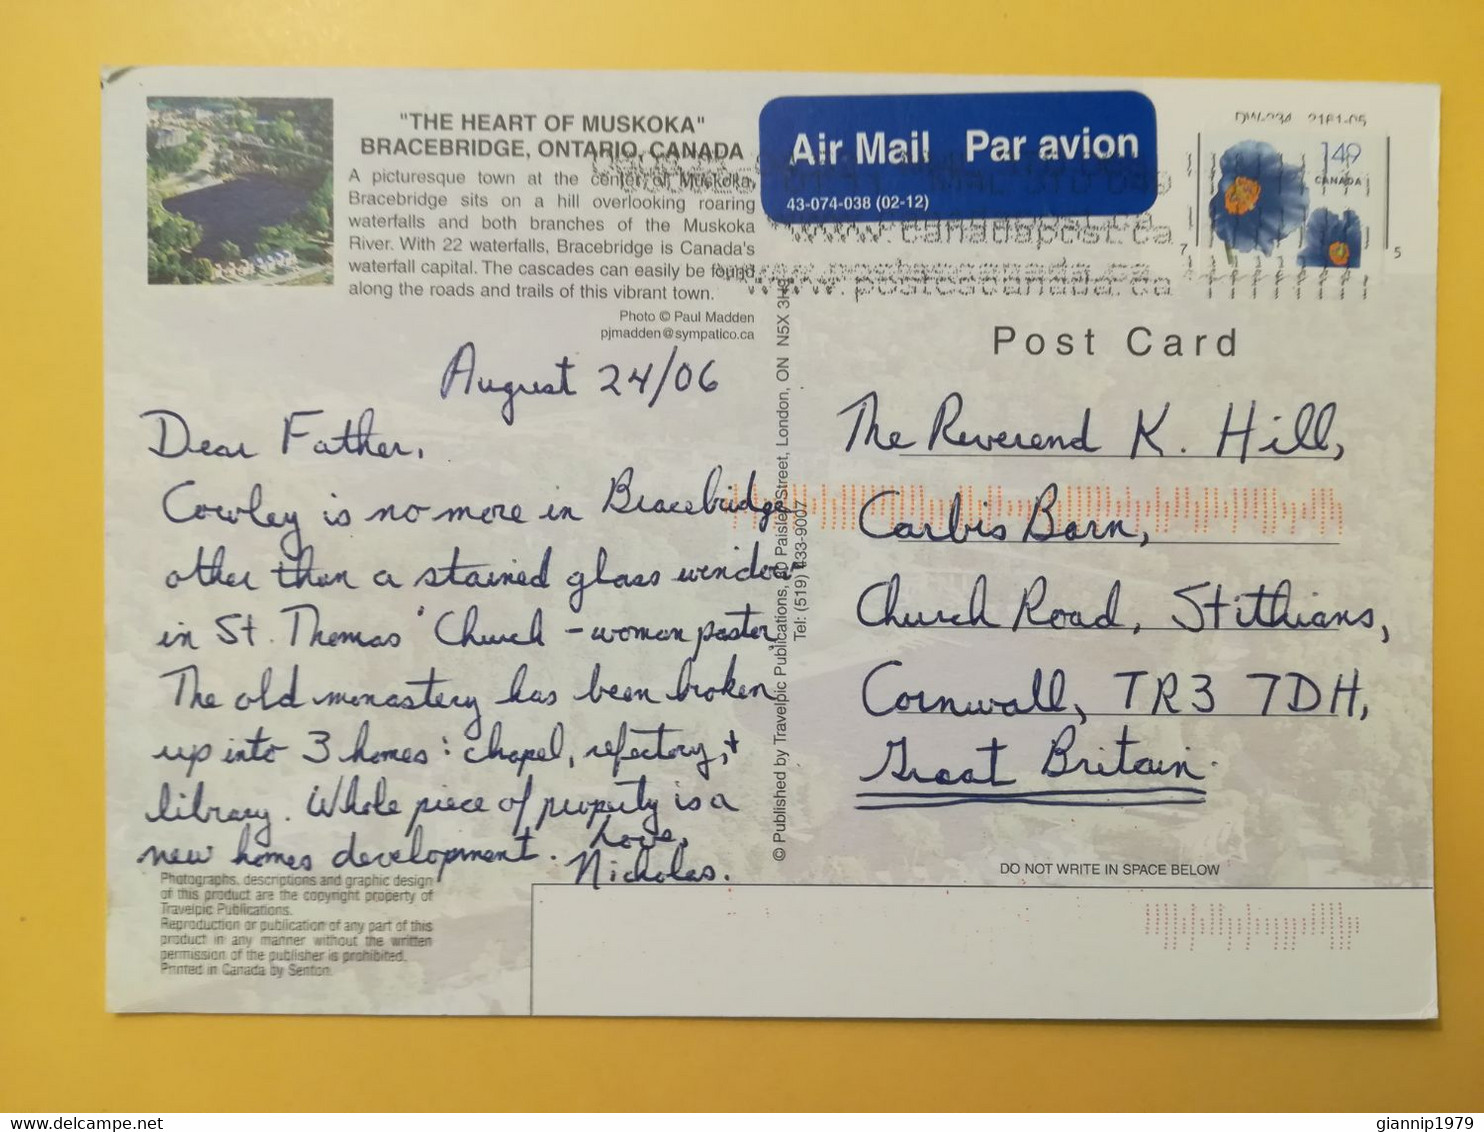 "THE HEART OF MUSKOKA"
BRACEBRIDGE, ONTARIO, CANADA
A picturesque town at the center of Muskoka,
Bracebridge sits on a hill overlooking roaring
waterfalls and both branches of the Muskoka
River. With 22 waterfalls, Bracebridge is Canada's
waterfall capital. The cascades can easily be found
along the roads and trails of this vibrant town.
Photo © Paul Madden
pjmadden@sympatico.ca
Air Mail Par avion
43-074-038 (02-12)
www.canadapost.ca
www.postescanada.ca
149
CANADA
7 5
Post Card
August 24/06
Dear Father,
Cowley is no more in Bracebridge
other than a stained glass window
in St. Thomas' Church - woman pastor.
The old monastery has been broken
up into 3 homes: chapel, refectory, +
library. Whole piece of property is a
new homes development. Love,
Nicholas.
© Published by Travelpic Publications, 80 Paisley Street, London, ON N5X 3H9
Tel: (519) 433-9007
The Reverend K. Hill,
Carbis Barn,
Church Road, Stithians,
Cornwall, TR3 7DH,
Great Britain.
DO NOT WRITE IN SPACE BELOW
Photographs, descriptions and graphic design
of this product are the copyright property of
Travelpic Publications.
Reproduction or publication of any part of this
product in any manner without the written
permission of the publisher is prohibited.
Printed in Canada by Senton
delcampe.net
giannip1979